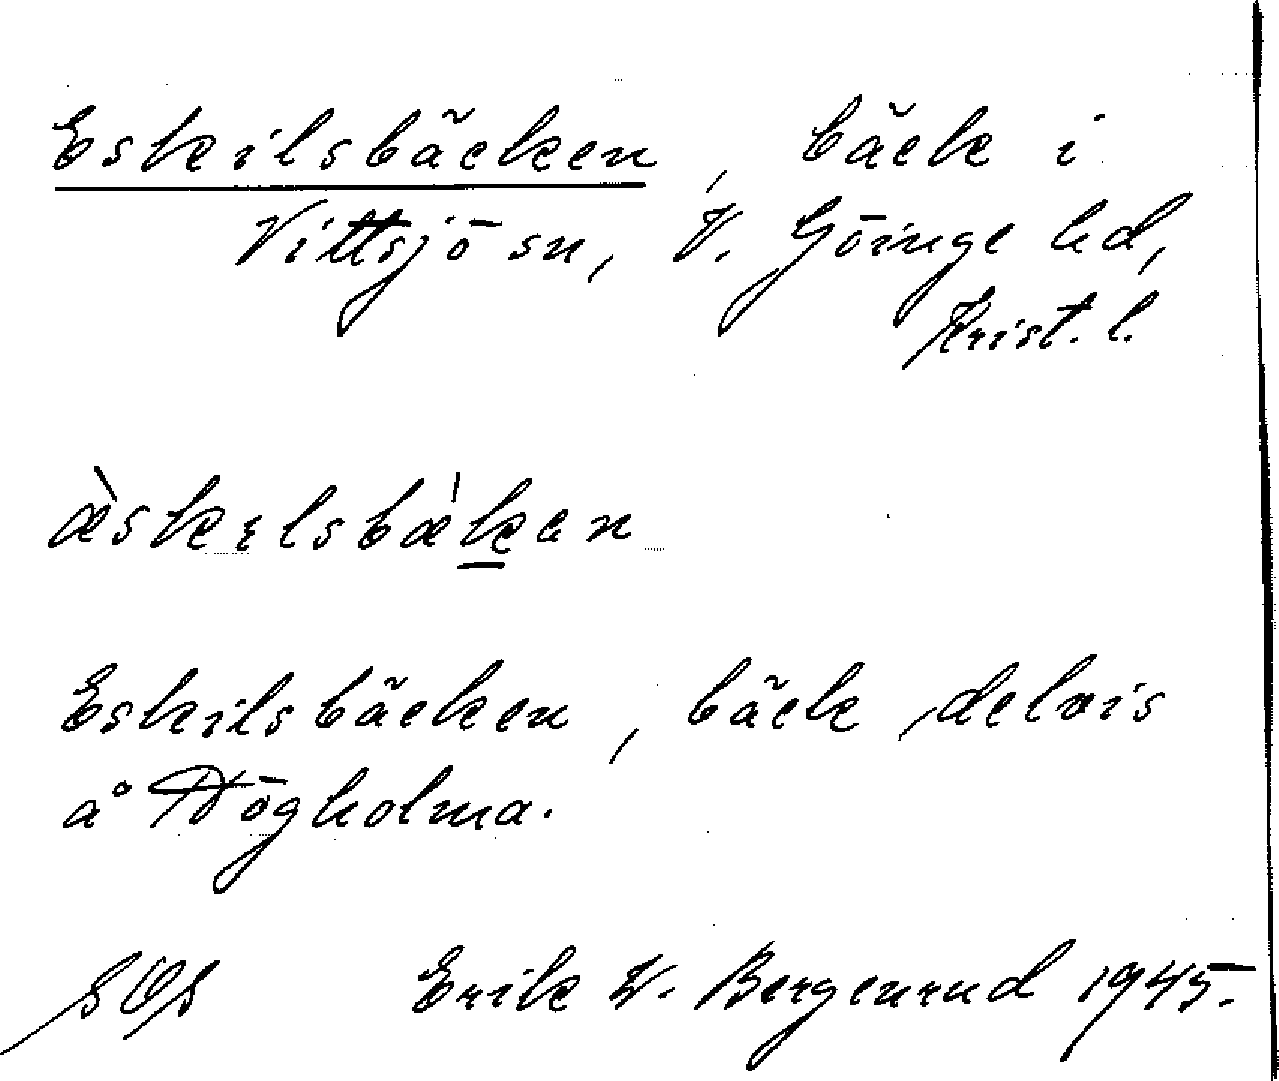 Eskilsbäcken, bäck i
Vittsjö sn, V. Göinge hd,
Krist. l.
Eskilsbäcken, bäck, delvis
å Högholma.
Erik W. Bergenrud 1945.